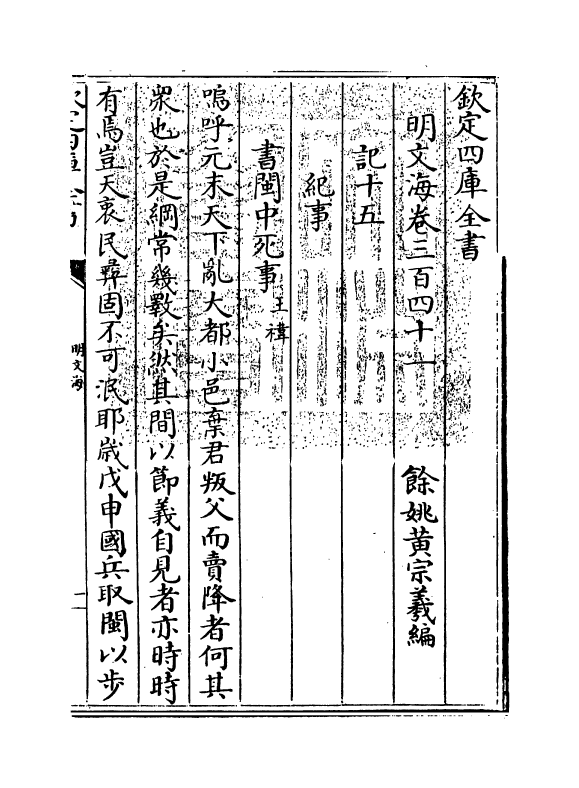 欽定四庫全書
明文海卷三百四十一 餘姚黃宗羲編
記十五
紀事
書閩中死事 王禕
嗚呼元末天下亂大都小邑棄君叛父而賣降者何其
衆也於是綱常幾斁矣然其間以節義自見者亦時時
有焉豈天衷民彞固不可泯耶歲戊申國兵取閩以步
明文海